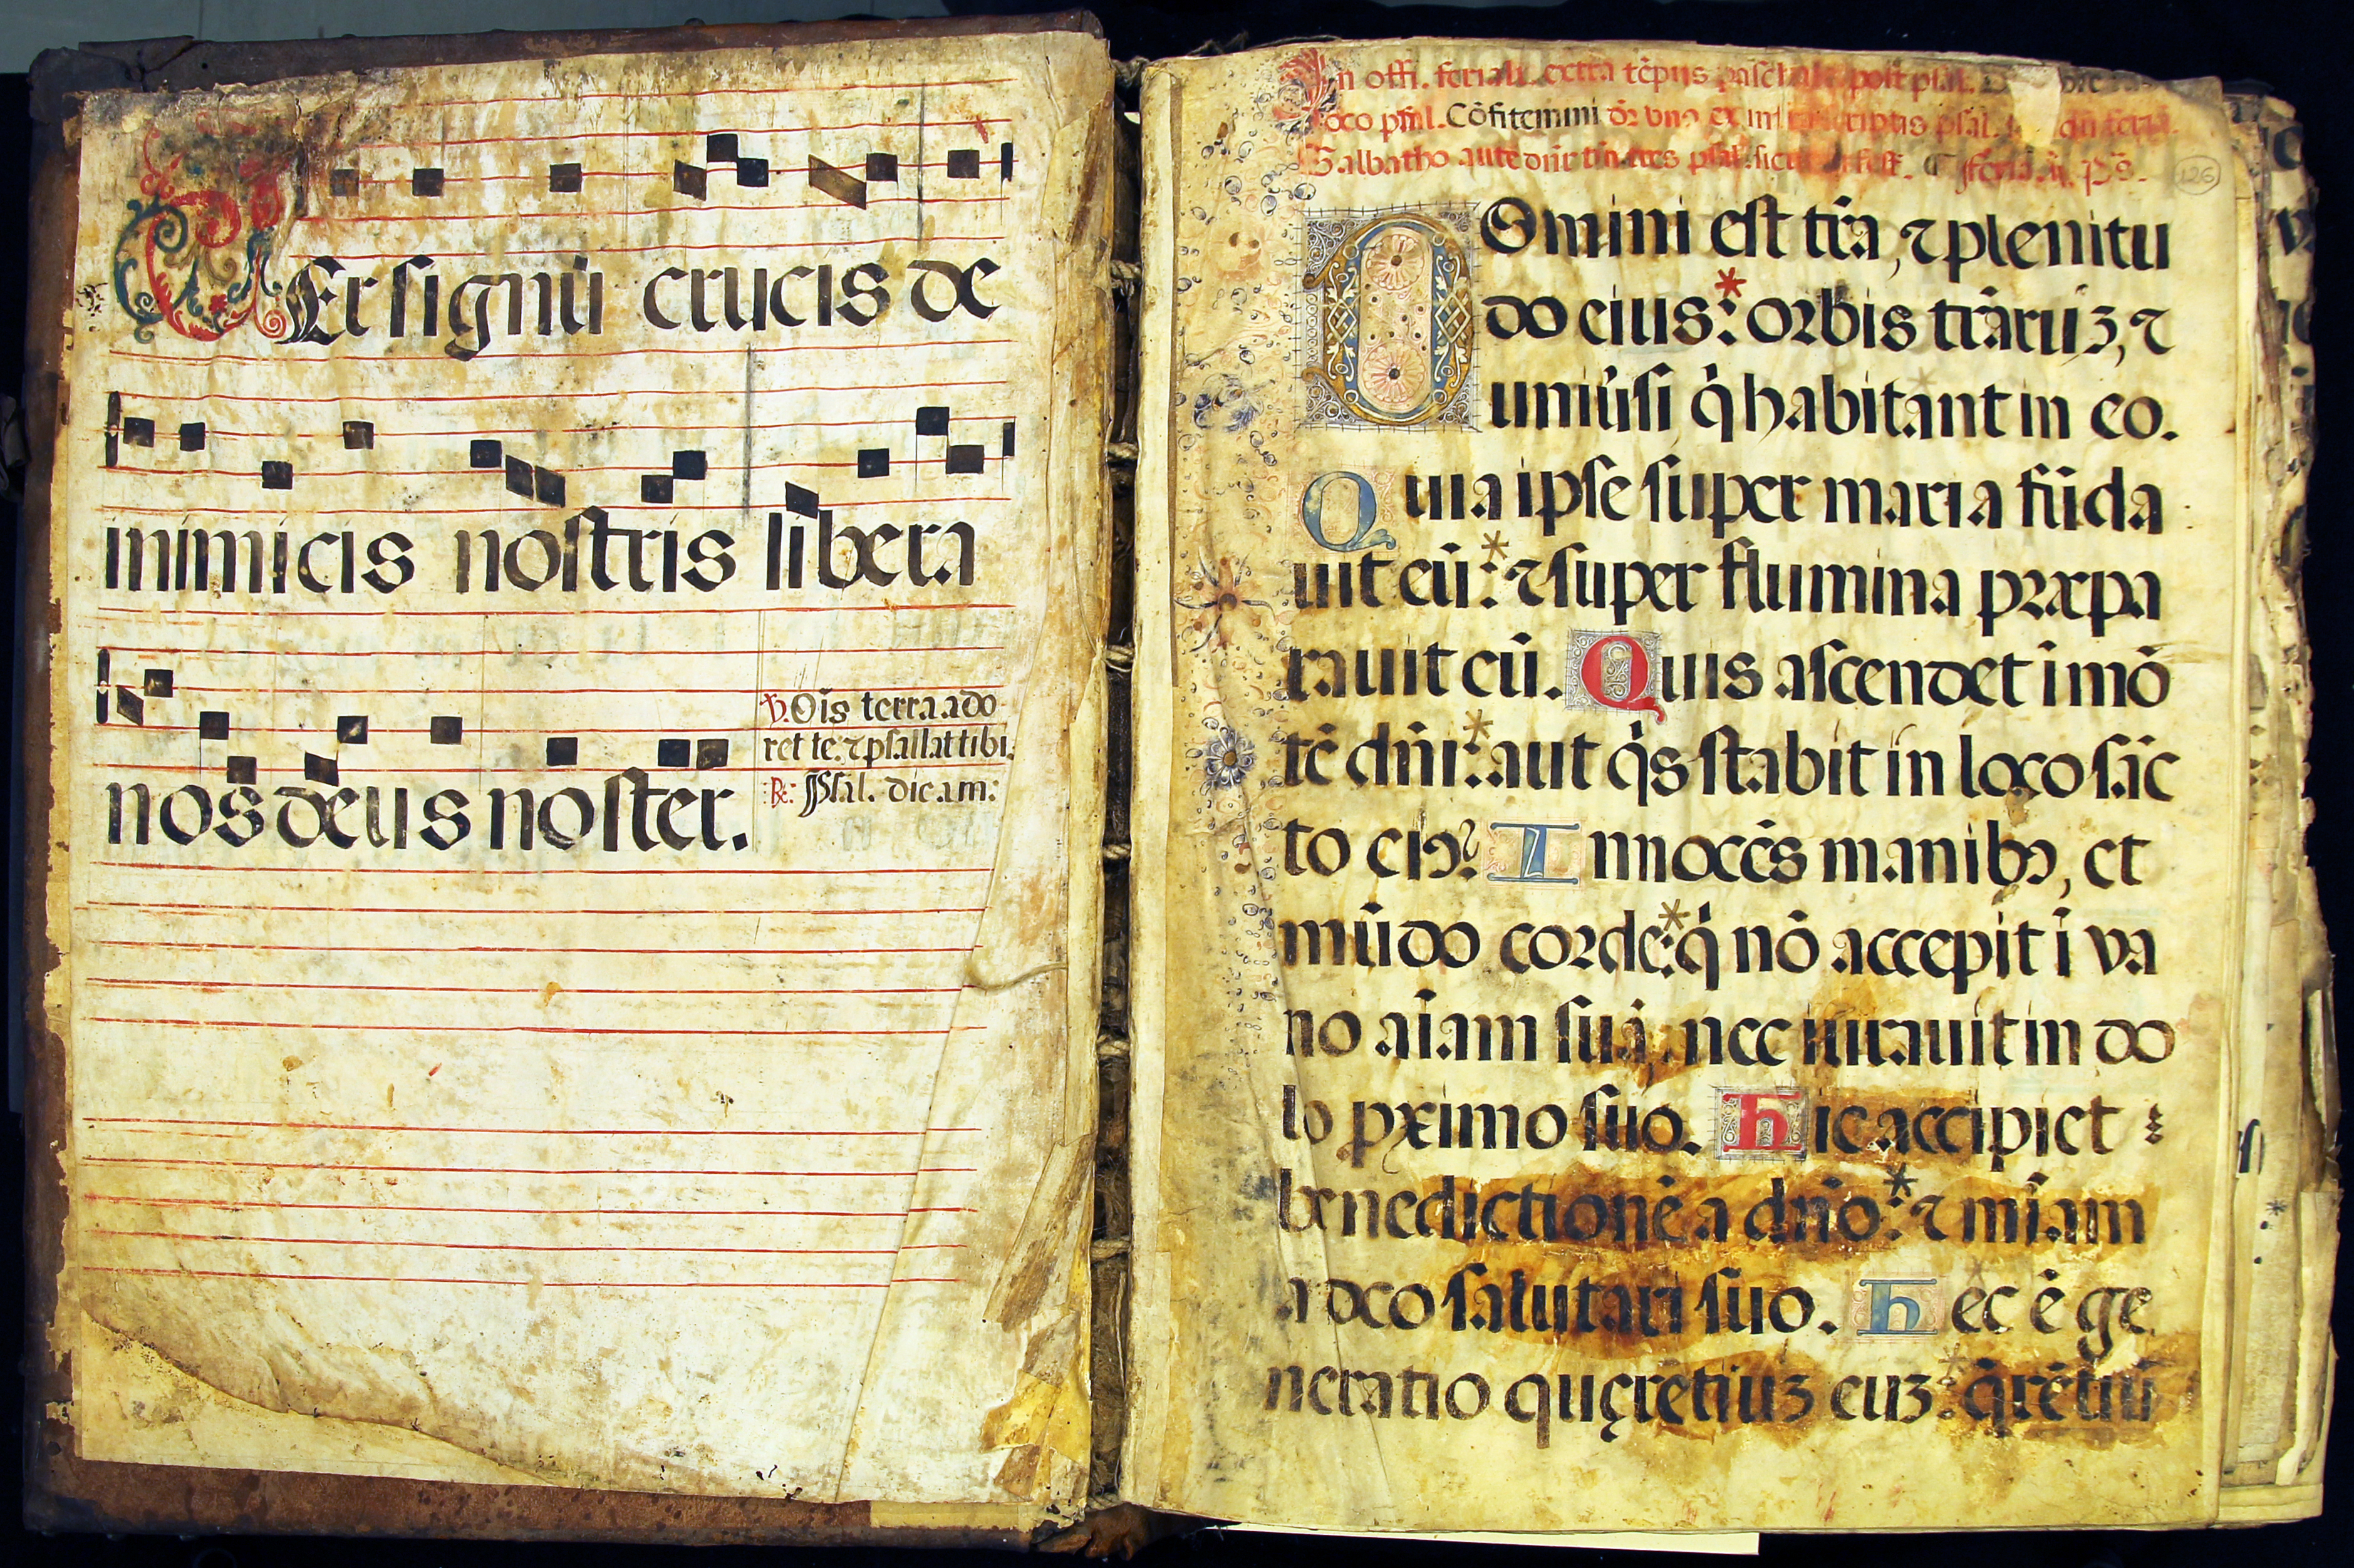 Per signū crucis de
inimicis nostris libera
nos deus noster.
℣. Oīs terra ado
ret te: ⁊ psallat tibi.
℟: Psal. dicam:
In offi. feriali extra tēpus paschale post psal.
loco psal. Cōfitemini dr̄ uno ex psal.
Sabatho aūte dn̄r tres psal. sicut
126
Domini est tr̄a, ⁊ plenitu
do eius:* orbis tr̄aruꝫ, ⁊
univ̄si q̇ habitant in eo.
Quia ipse super maria fūda
uit eū:* ⁊ super flumina præpa
rauit eū. Quis ascendet ī mō
tē dn̄i:* aut q̇s stabit in loco sāc
to eiꝰ? Innocēs manibꝰ, et
mūdo corde:* q̇ nō accepit ī va
no aīam suā, nec iurauit in do
lo pximo suo. Hic accipiet
benedictionē a dn̄o:* ⁊ mīam
a deo salutari suo. Hec ē ge
neratio quęrētiuꝫ euꝫ:* q̄rētiū